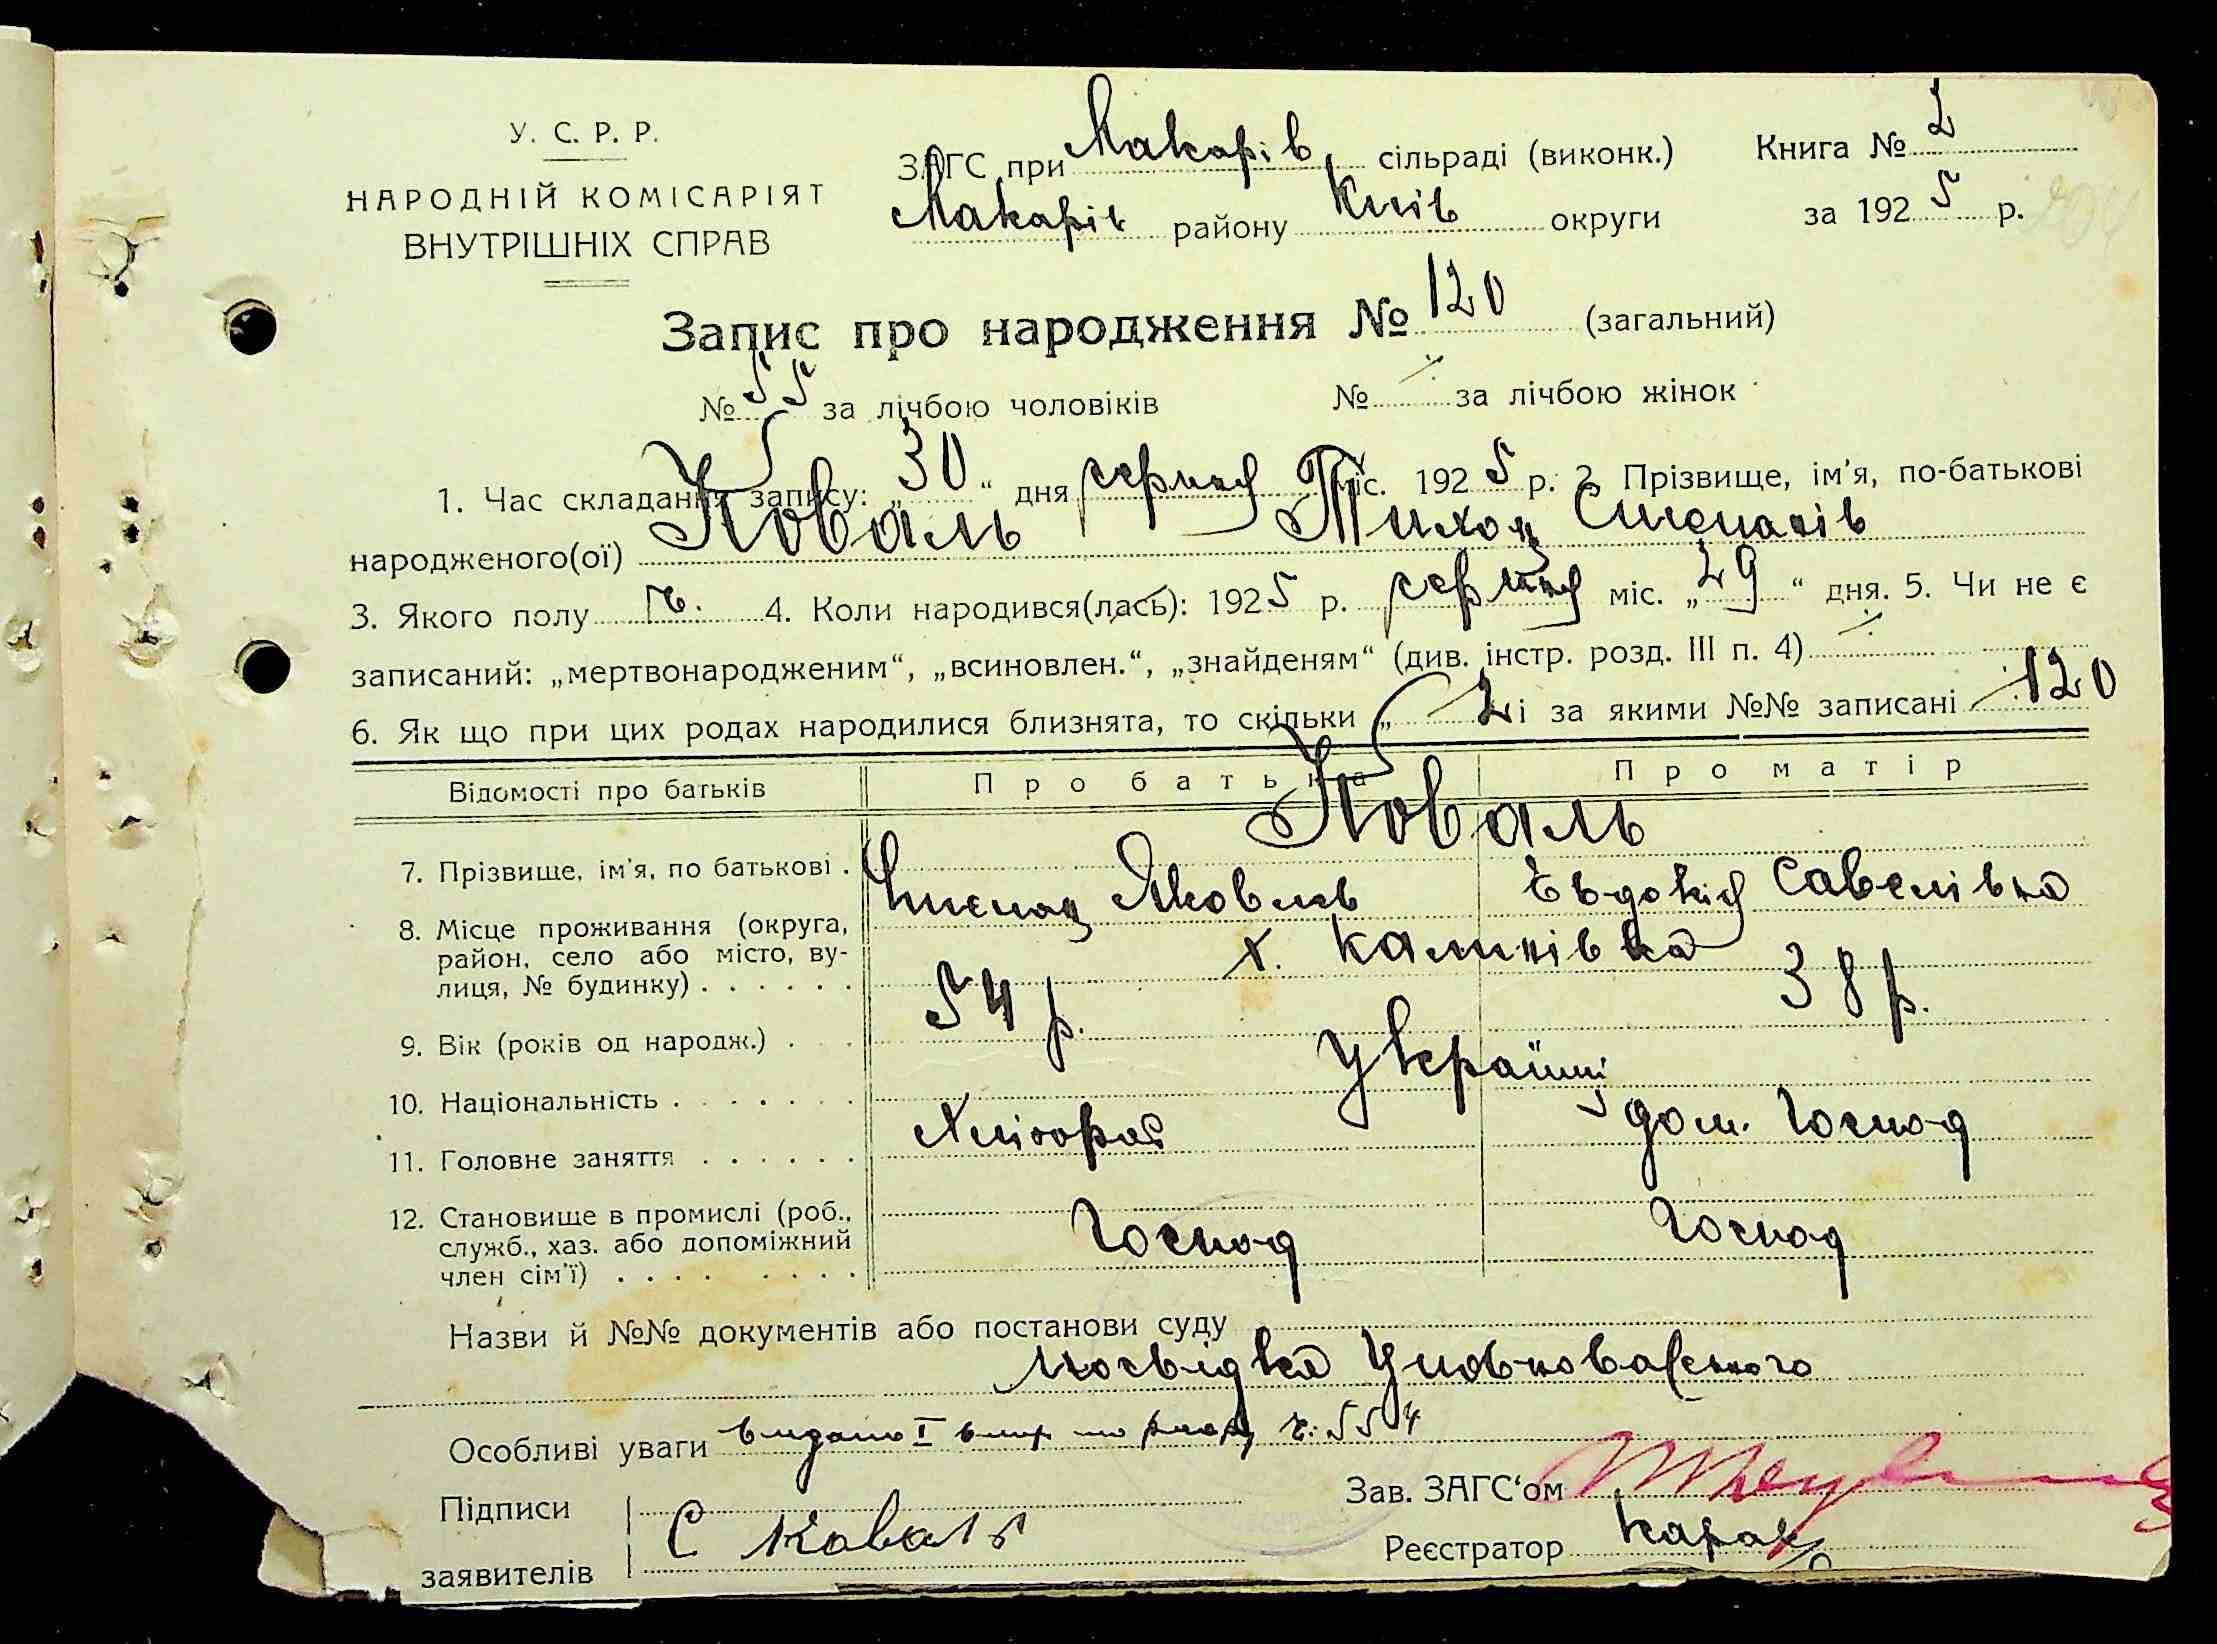 У. С. Р. Р.
НАРОДНІЙ КОМІСАРІЯТ
ВНУТРІШНІХ СПРАВ
ЗАГС при Макарів сільраді (виконк.)
Макарів району Київ округи
Книга № 2
за 1925 р.
Запис про народження № 120 (загальний)
№ 55 за лічбою чоловіків № за лічбою жінок
1. Час складання запису: „30“ дня серпня міс. 1925 р. 2. Прізвище, ім'я, по-батькові
народженого(ої) Коваль Тихон Степанів
3. Якого полу ч. 4. Коли народився(лась): 1925 р. серпня міс. „29“ дня. 5. Чи не є
записаний: „мертвонародженим“, „всиновлен.“, „знайденям“ (див. інстр. розд. III п. 4)
6. Як що при цих родах народилися близнята, то скільки „ 2 і за якими №№ записані 120
Відомості про батьків Про батька Про матір
Коваль
7. Прізвище, ім'я, по батькові . Степан Яковлів Евдокія Савелівна
8. Місце проживання (округа,
район, село або місто, ву-
лиця, № будинку) . . . . . . х. Калинівка
9. Вік (років од народж.) . . . 54 р. 38 р.
10. Національність . . . . . . . Українці
11. Головне заняття . . . . . . Хлібороб дом. Господ
12. Становище в промислі (роб.,
служб., хаз. або допоміжний
член сім'ї) . . . . . . . . Господ Господ
Назви й №№ документів або постанови суду
посвідка Уповноваженого
Особливі уваги видано I ч. 554
Підписи
заявителів С Коваль
Зав. ЗАГС‘ом
Реєстратор